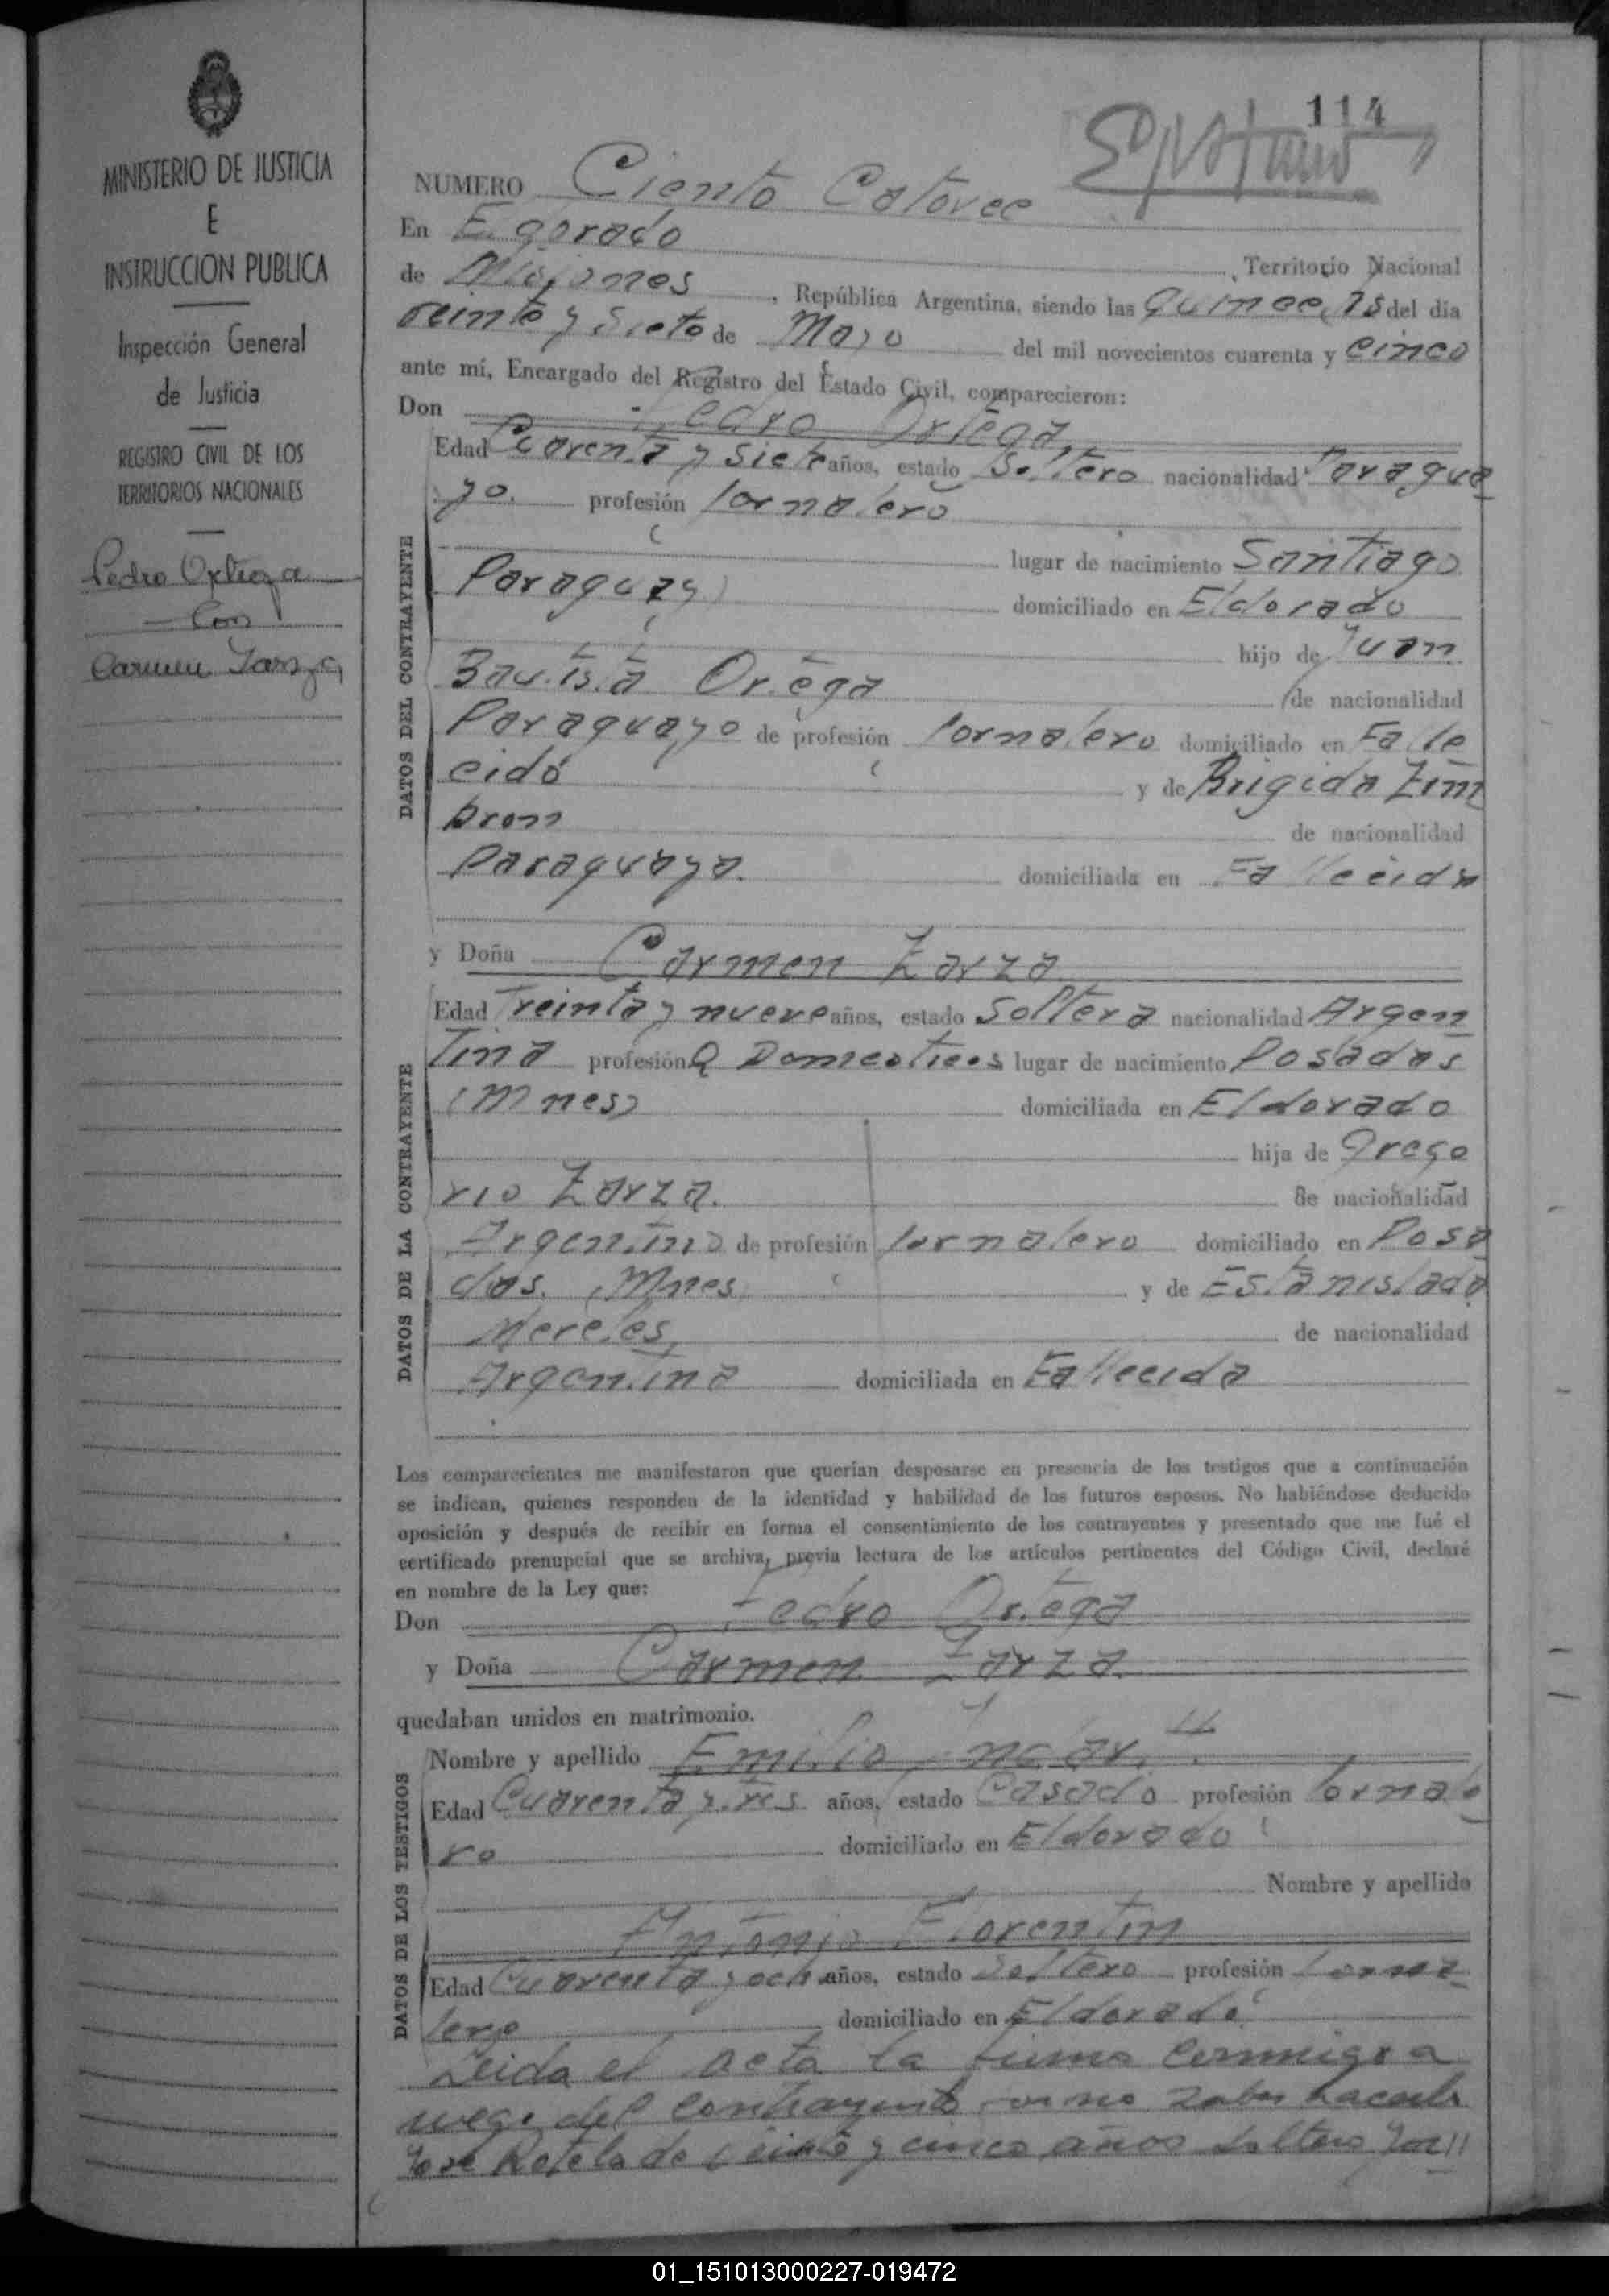 MINISTERIO DE JUSTICIA
E
INSTRUCCION PUBLICA
Inspección General
de Justicia
REGISTRO CIVIL DE LOS
TERRITORIOS NACIONALES
Pedro Ortega
con
Carmen Zarza
114
NUMERO Ciento Catorce
En Eldorado
Territorio Nacional
de Misiones, República Argentina, siendo las quince, 15 del día
veinte y siete de Mayo del mil novecientos cuarenta y cinco
ante mí, Encargado del Registro del Estado Civil, comparecieron:
Don Pedro Ortega
DATOS DEL CONTRAYENTE
Edad Cuarenta y siete años, estado Soltero nacionalidad Paragua
yo. profesión Jornalero
lugar de nacimiento Santiago
Paraguay) domiciliado en Eldorado
hijo de Juan
Bautista Ortega de nacionalidad
Paraguayo de profesión Jornalero domiciliado en Falle
cido y de Brigida Zim
bron de nacionalidad
Paraguaya. domiciliada en Fallecida
y Doña Carmen Zarza
DATOS DE LA CONTRAYENTE
Edad Treinta y nueve años, estado Soltera nacionalidad Argen
tina profesión Q Domesticos lugar de nacimiento Posadas
(Mnes) domiciliada en Eldorado
hija de Grego
rio Zarza. de nacionalidad
Argentino de profesión Jornalero domiciliado en Posa
das. (Mnes y de Estanislada
Mereles, de nacionalidad
Argentina domiciliada en Fallecida
Los comparecientes me manifestaron que querían desposarse en presencia de los testigos que a continuación
se indican, quienes responden de la identidad y habilidad de los futuros esposos. No habiéndose deducido
oposición y después de recibir en forma el consentimiento de los contrayentes y presentado que me fué el
certificado prenupcial que se archiva, previa lectura de los artículos pertinentes del Código Civil, declaré
en nombre de la Ley que:
Don Pedro Ortega
y Doña Carmen Zarza.
quedaban unidos en matrimonio.
DATOS DE LOS TESTIGOS
Nombre y apellido Emilio
Edad Cuarenta y tres años, estado Casado profesión Jornale
ro domiciliado en Eldorado
Nombre y apellido
Antonio Florentin
Edad Cuarenta y ocho años, estado Soltero profesión Jorna
lero domiciliado en Eldorado
Leida el acta la firma conmigo a
ruego del contrayente por no saber hacerlo
Jose de veinte y cinco años soltero Jor//
01_151013000227-019472